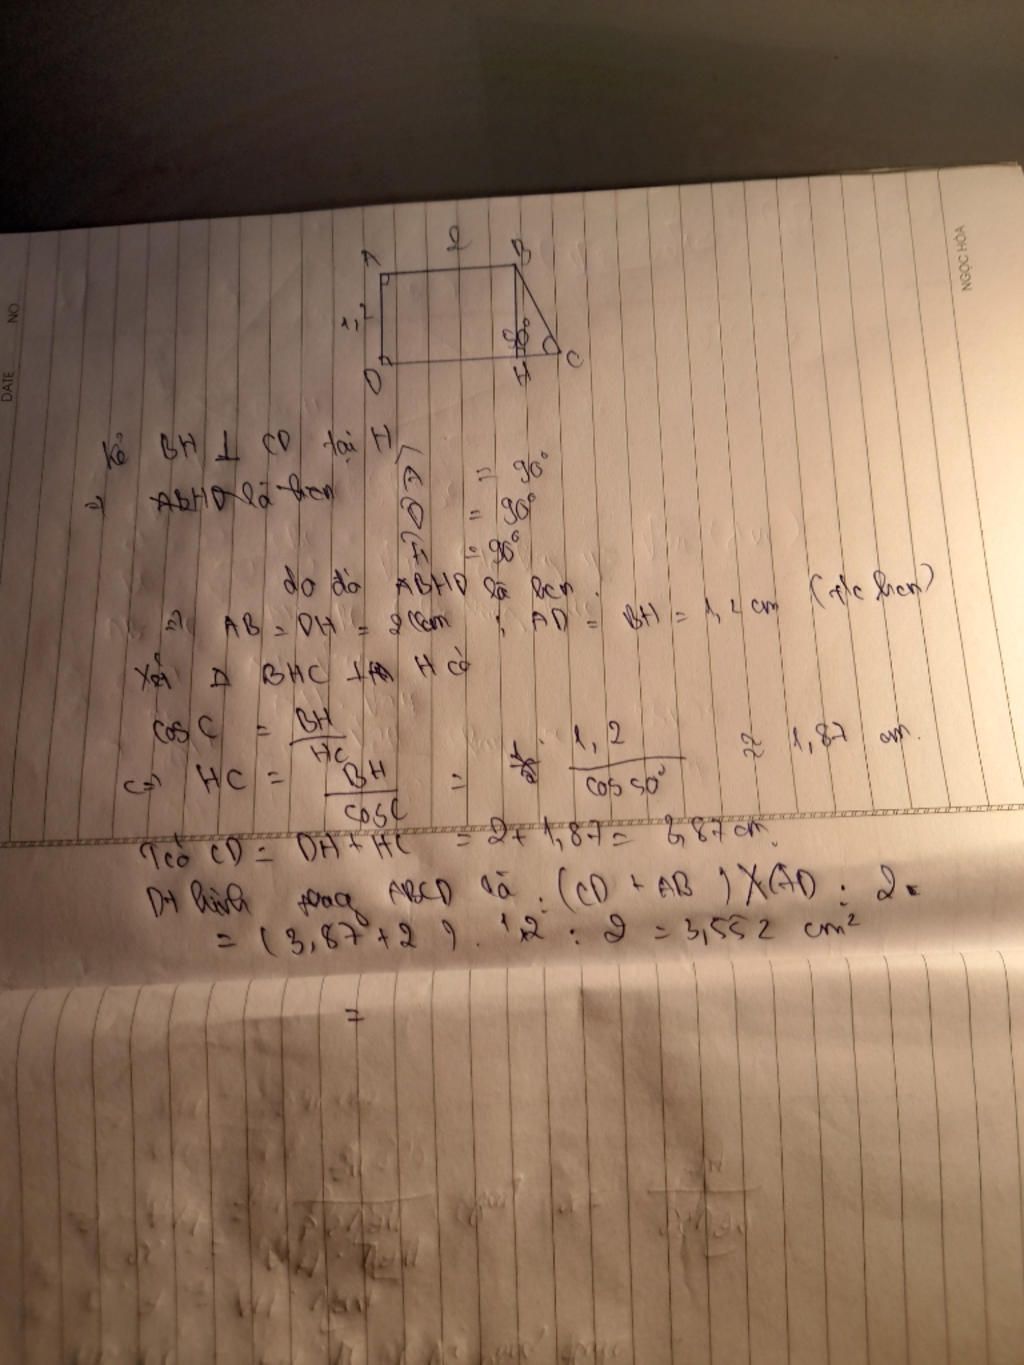 DATE NO
NGỌC HÒA
A 2 B
1,2
50°
D H C
Kẻ BH ⊥ CD tại H
 = 90°
⇒ ABHD là hcn
D̂ = 90°
Ĥ = 90°
do đó ABHD là hcn.
⇒ AB = DH = 2cm ; AD = BH = 1,2 cm (t/c hcn)
Xét Δ BHC H có
cos C = BH / HC
⇔ HC = BH / cos C = 1,2 / cos 50° ≈ 1,87 cm.
Tcó CD = DH + HC = 2 + 1,87 = 3,87 cm.
Dt hình thang ABCD là : (CD + AB) X AD : 2.
= (3,87 + 2) . 1,2 : 2 = 3,552 cm²
=